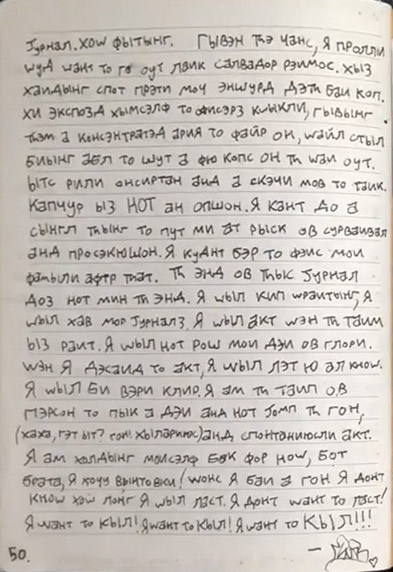 Јурнал. Хоw фытынг. Гывэн тһэ чанс, я пролли
wуд wант то го оут лаик салвадор рэимос. Хыз
хаидынг спот прэти моч эншурд дэтһ баи коп.
Хи экспозд хымсэлф то офисэрз кыыкли, гывынг
тһэм а консэнтратэд ария то файр он, wайл стыл
биынг абл то шут а фю копс он тһ wаи оут.
Ытс рили онсиртан анд а скэчи мов то таик.
Капчур ыз НОТ ан опшон. Я кант до а
сынгл тһынг то пут ми ат рыск ов сурваивал
анд просэкюшон. Я куднт бэр то фэис мои
фамыли афтр тһат. Тһ энд ов тһыс Јурнал
доз нот мин тһ энд. Я wыл кип wраитынг, я
wыл хав мор Јурналз. Я wыл акт wэн тһ таим
ыз раит. Я wыл нот рош мои дэи ов глори.
Wэн я дэсаид то акт, я wыл лэт ю ал кноw.
Я wыл би вэри клир. Я ам тһ таип ов
пэрсон то пык а дэи анд нот Јомп тһ гон,
(хаха, гэт ыт? гон! хыларийос) анд спонтаниюсли акт.
Я ам холдынг моисэлф бэк фор ноw, бот
брата, я хочу винтовки! Wонс я баи а гон я донт
кноw хоw лонг я wыл ласт. Я донт wант то ласт!
Я wант то кыл! Я wант то кыл! Я wант то КЫЛ!!!
50.